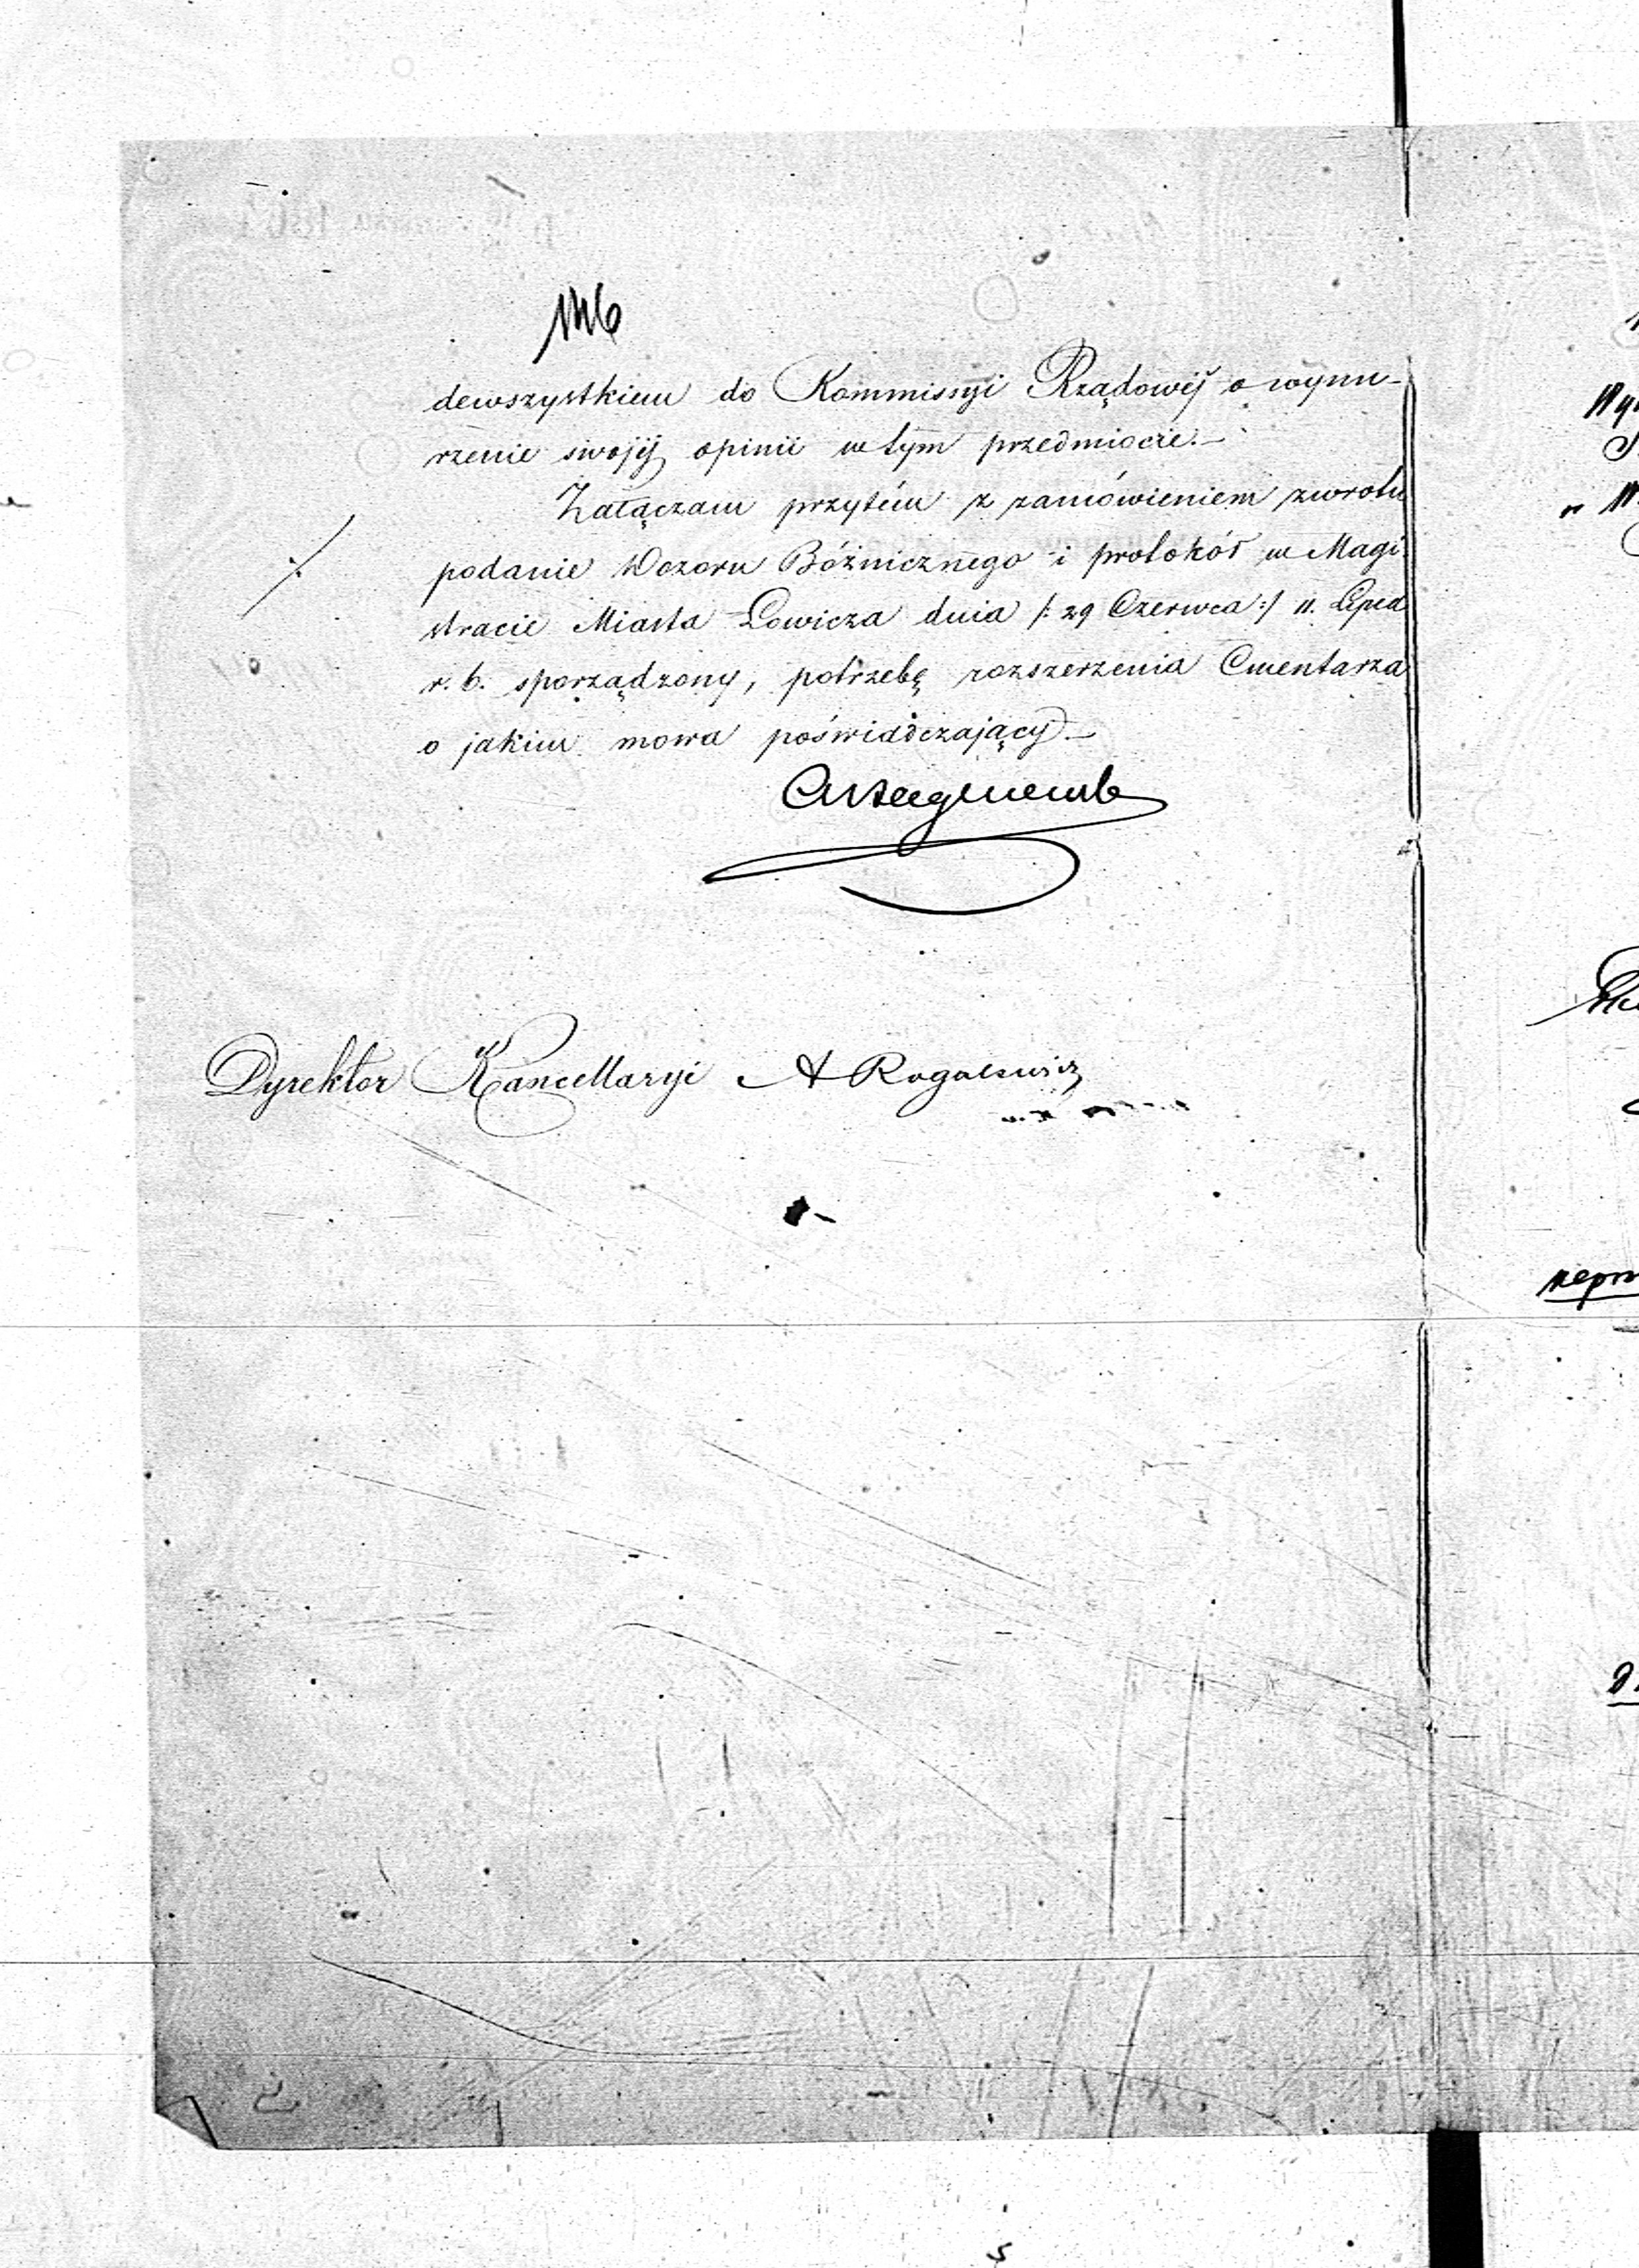 dewszystkiem do Kommissyi Rządowéj o wynu-
rzenie swojéj opinii w tym przedmiocie.—
Załączam przytém z zamówieniem zwrotu
podanie Dozoru Bóżnicznego i protokół w Magi
stracie Miasta Łowicza dnia /: 29 Czerwca :/ 11. Lipca
r. b. sporządzony, potrzebę rozszerzenia Cmentarza
o jakim mowa poświadczający.—
Dyrektor Kancellaryi A Rogalewicz